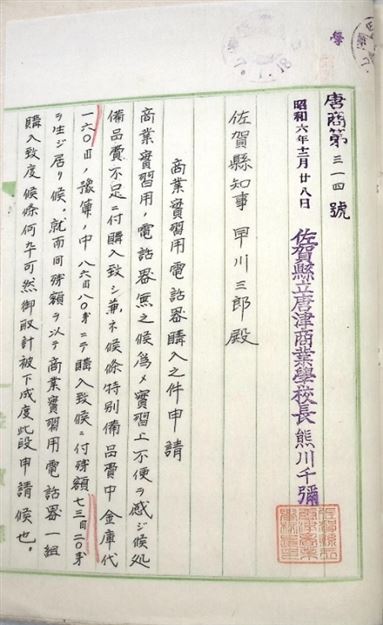 學
唐商第三一四號
昭和六年十二月廿八日
佐賀縣立唐津商業學校長熊川千彌
佐賀縣知事 早川三郎殿
商業實習用電話器購入之件申請
商業實習用ノ電話器無之候爲メ實習上不便ヲ感ジ候処
備品費不足ニ付購入致シ兼ネ候條特別備品費中金庫代
一六〇円ノ豫算ノ中八六円八〇銭ニテ購入致候ニ付残額七三円二〇銭
ヲ生ジ居リ候、就而同残額ヲ以テ商業實習用電話器一組
購入致度候條何卒可然御取計被下成度此段申請候也。